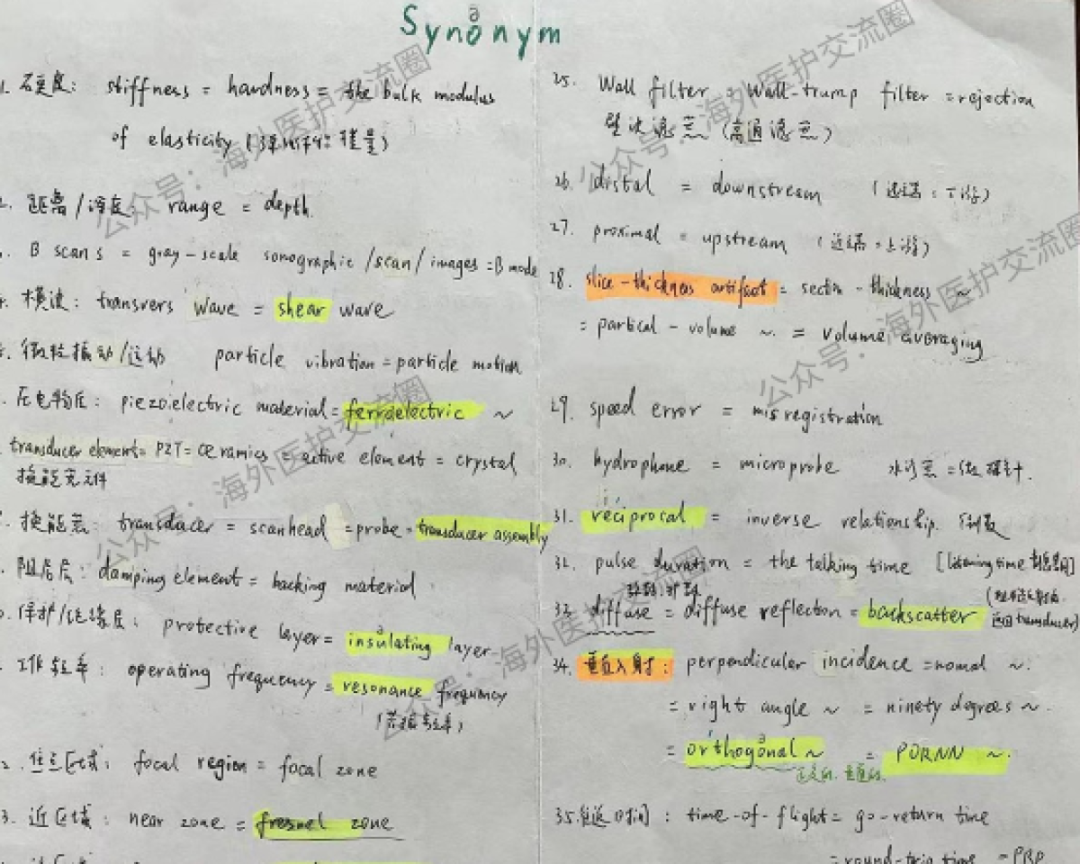 Synonym
1. 硬度: stiffness = hardness = the bulk modulus
of elasticity (弹性体积模量)
2. 距离/深度: range = depth
B scans = gray-scale sonographic/scan/images = B mode
横波: transvers wave = shear wave
微粒振动/运动 particle vibration = particle motion
压电物质: piezoielectric material = ferroelectric ~
transducer element = PZT = ceramics = active element = crystal
换能元件
换能器: transducer = scanhead = probe = transducer assembly
阻尼层: damping element = backing material
保护/绝缘层: protective layer = insulating layer
工作频率: operating frequency = resonance frequency
(共振频率)
焦点区域: focal region = focal zone
3. 近区域: near zone = fresnel zone
25. Wall filter, Wall-trump filter = rejection
壁波滤器 (高通滤器)
26. distal = downstream (远端: 下游)
27. proximal = upstream (近端: 上游)
28. slice-thickness artifact = section-thickness ~
= partical-volume ~. = volume averaging
29. speed error = misregistration
30. hydrophone = microprobe 水诊器 = 微探针.
31. reciprocal = inverse relationship. 倒数
32. pulse duration = the talking time [listening time
32. diffuse = diffuse reflection = backscatter
返回 transducer)
34. 垂直入射: perpendicular incidence = nomal ~.
= right angle ~ = ninety degrees ~.
= orthogonal ~ = PORNN ~.
正交的, 垂直的.
35. 往返时间: time-of-flight = go-return time
= round-trip time = PRP
公众号: 海外医护交流圈
公众号: 海外医护交流圈
公众号: 海外医护交流圈
公众号: 海外医护交流圈
公众号: 海外医护交流圈